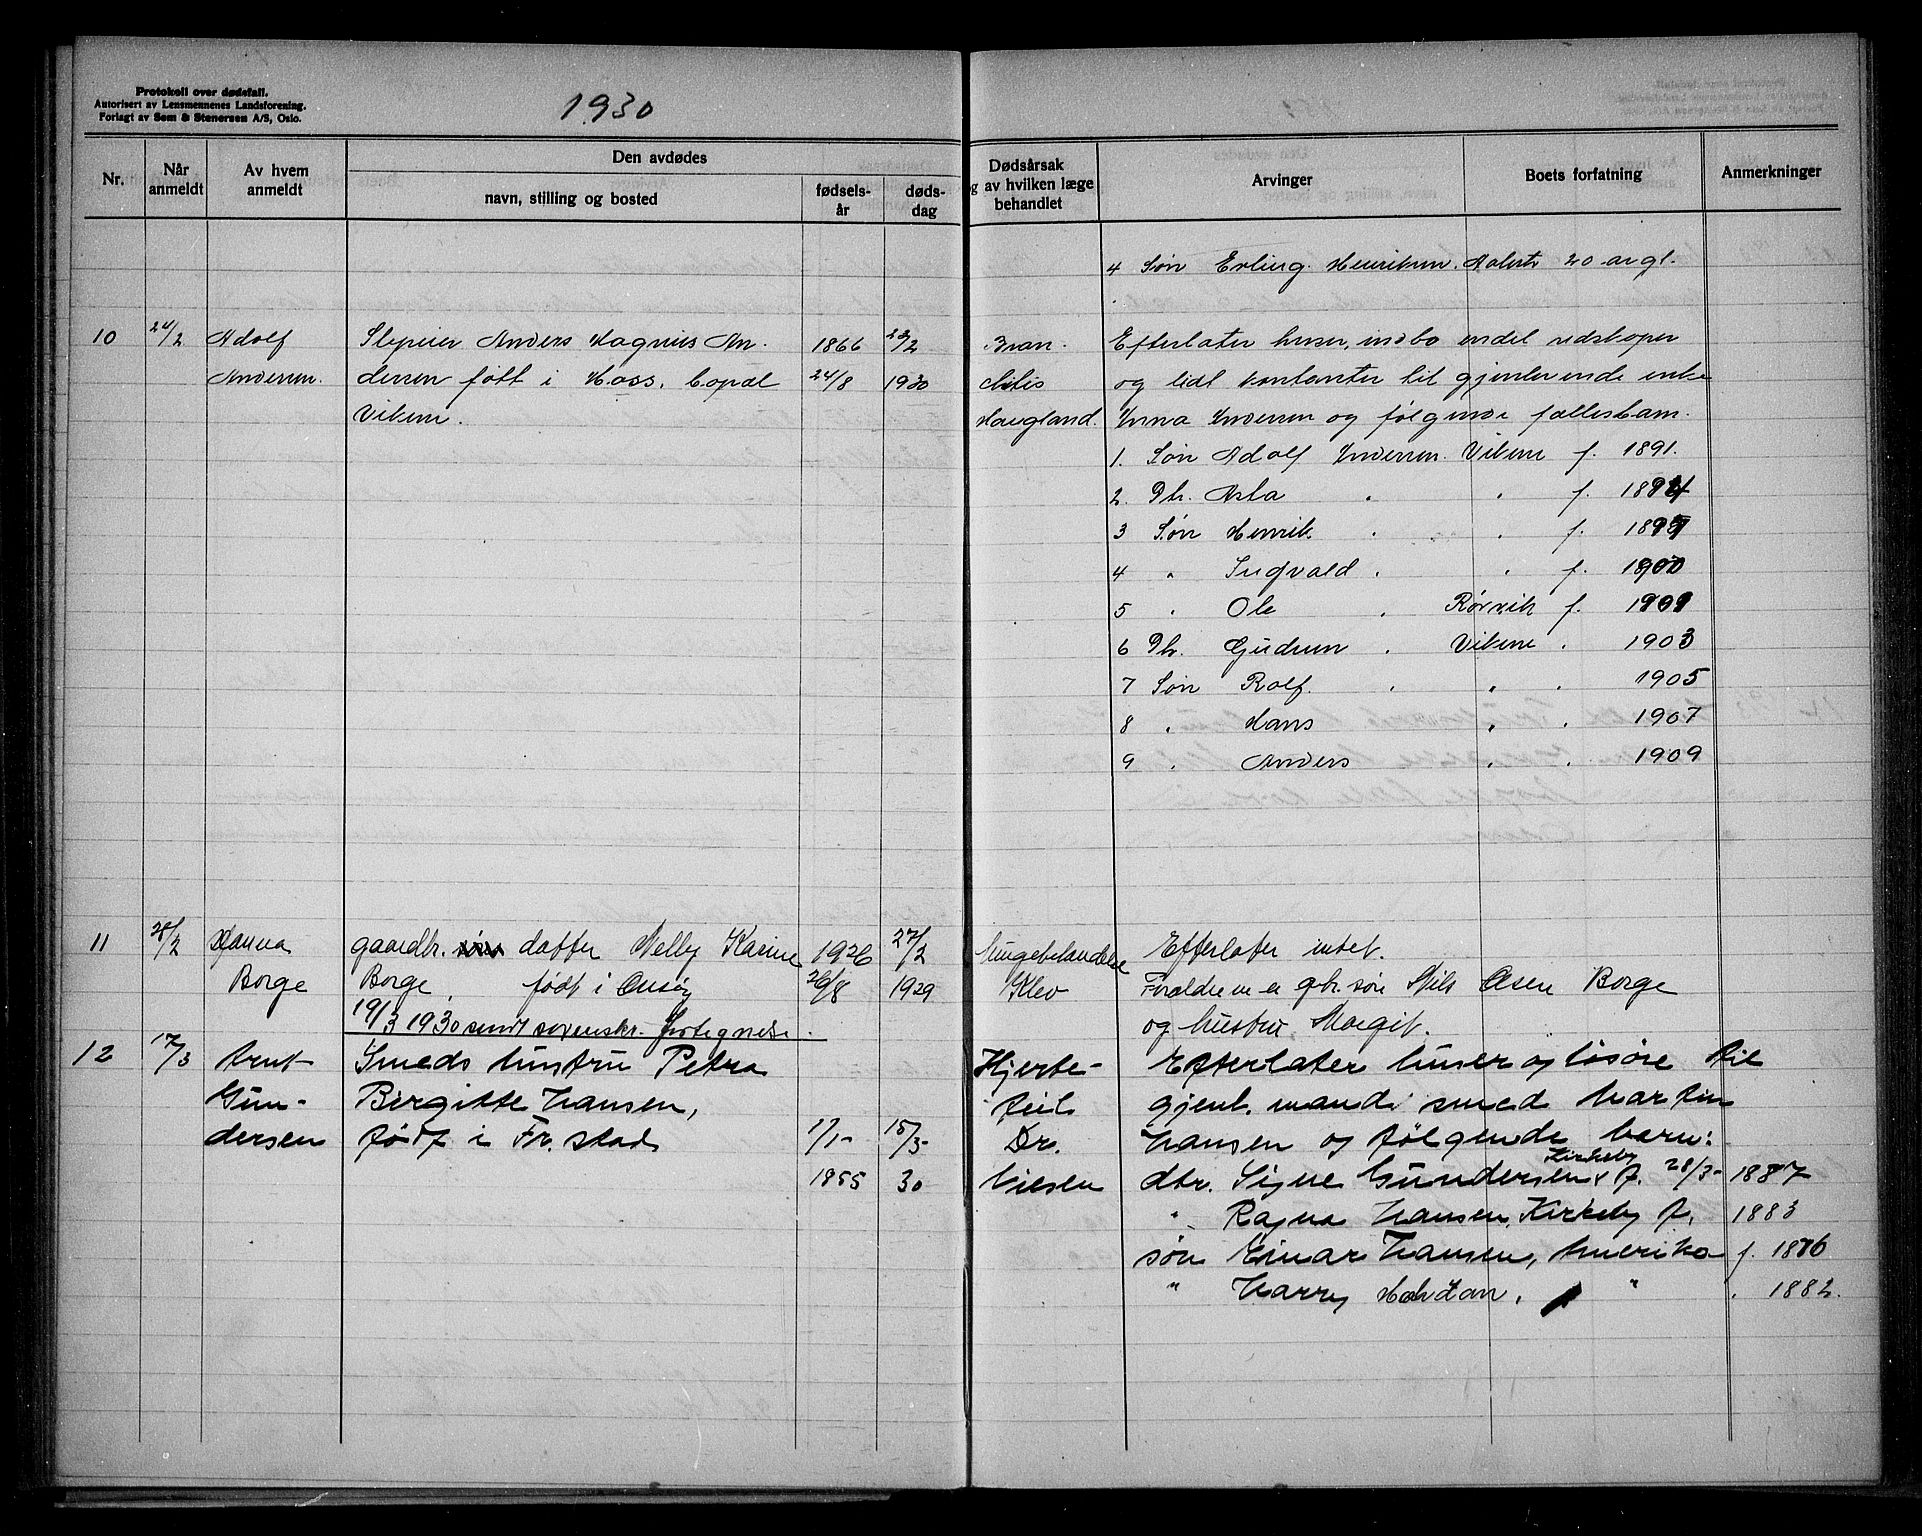 Protokoll over dødsfall.
Autorisert av Lensmennenes Landsforening.
Forlagt av Sem & Stenersen A/S, Oslo.
1930
Nr.
Når anmeldt
Av hvem anmeldt
Den avdødes
navn, stilling og bosted
fødselsår
dødsdag
Dødsårsak
og av hvilken læge
behandlet
Arvinger
Boets forfatning
Anmerkninger
4 Søn Erling Henriksen. 20 ar gl.
10 24/2 Adolf Stenhier Anders Magnus An- 1866 23/2 Bron- Efterlater huser, indbo endel redskaper
Andersen. dersen født i Moss. 24/8 1930 chitis og lidt kontanter til gjenlevende enke
Vikene. Haugland. Anna Andersen og følgende fællesbarn.
1. Søn Adolf Andersen. Vikene f. 1891.
2. Dtr. Asta " " f. 1894
3 Søn Henrik " " f.
4 " Ingvald " " f. 1900
5 " Ole " Rørvik f.
6 Dtr. Gudrun " Vikene " 1903
7 Søn Rolf " " " 1905
8 " Hans " " 1907
9 " Anders " " 1909
11 28/2 Hanna gaardbr. søns datter Nelly Karine 1926 27/2 lungebetændelse Efterlater intet.
Borge Borge, født i Onsøy 26/8 1929 Klev Foreldrene er gbr. søn Nils Olsen Borge
19/3 1930 sendt sorenskr. fortegnelse. og hustru Margit.
12 17/3 Arnt Smeds hustru Petra Hjerte- Efterlater huser og løsøre til
Gun- Birgitte Hansen, feil gjenl. mand smed Martin
dersen født i Fr.stad 1/1- 15/3- Dr. Hansen og følgende barn:
Kirkeby
1855 30 Nilsen dtr. Signe Gundersen f. 28/3- 1887
" Ragna Hansen, Kirkeby f. 1883
søn Einar Hansen, Amerika f. 1876
" Harry " . 1882.